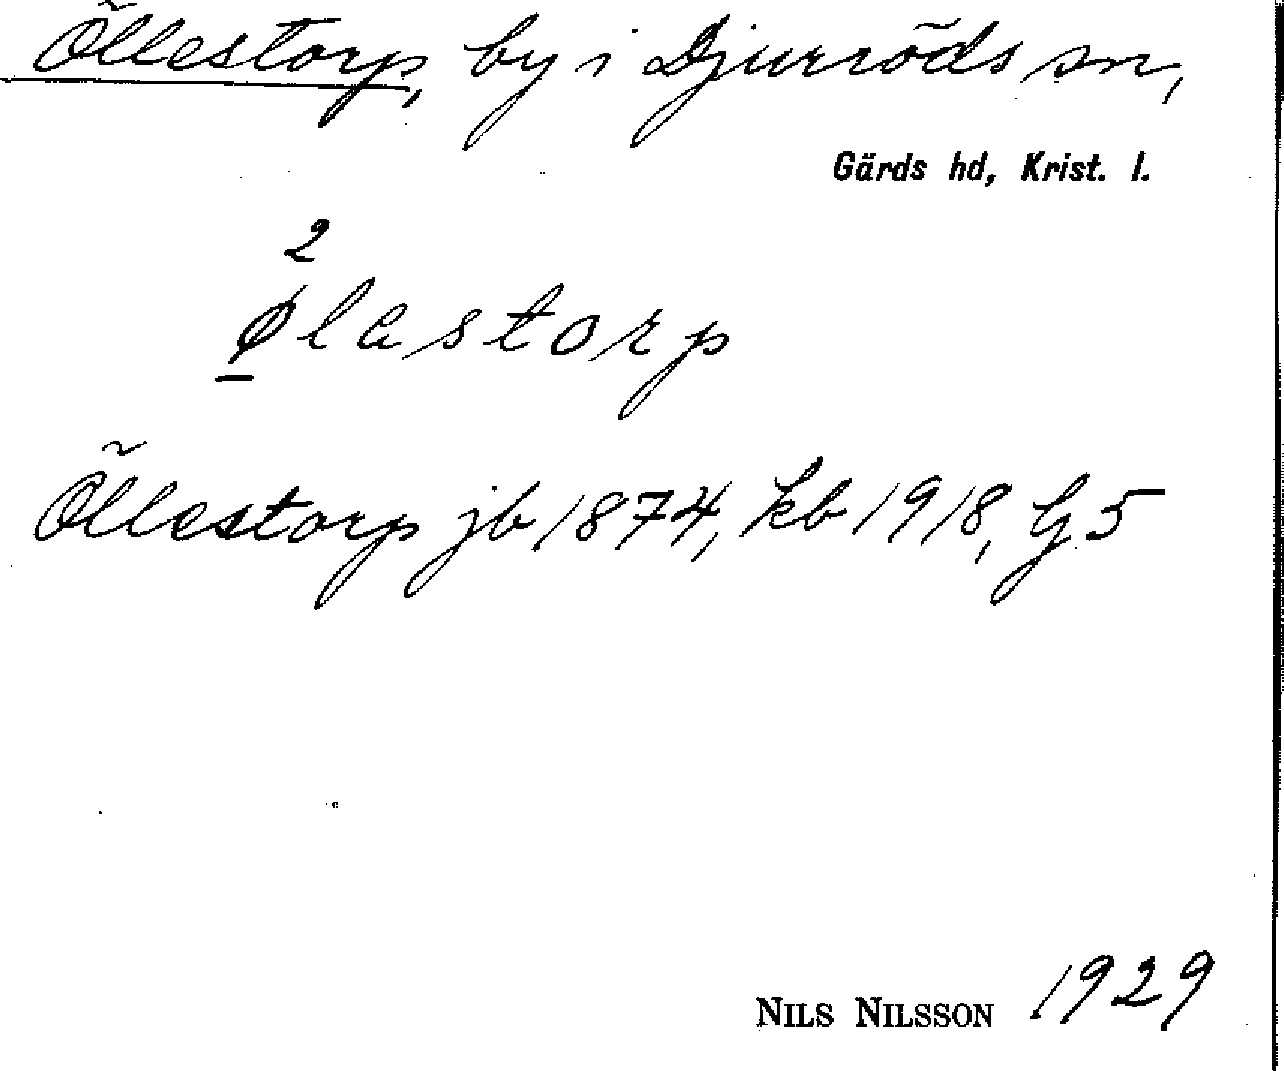 Öllestorp, by i Djurröds sn,
Gärds hd, Krist. l.
2
ølastorp
Öllestorp jb 1874, kb 1918, G 5
NILS NILSSON 1929